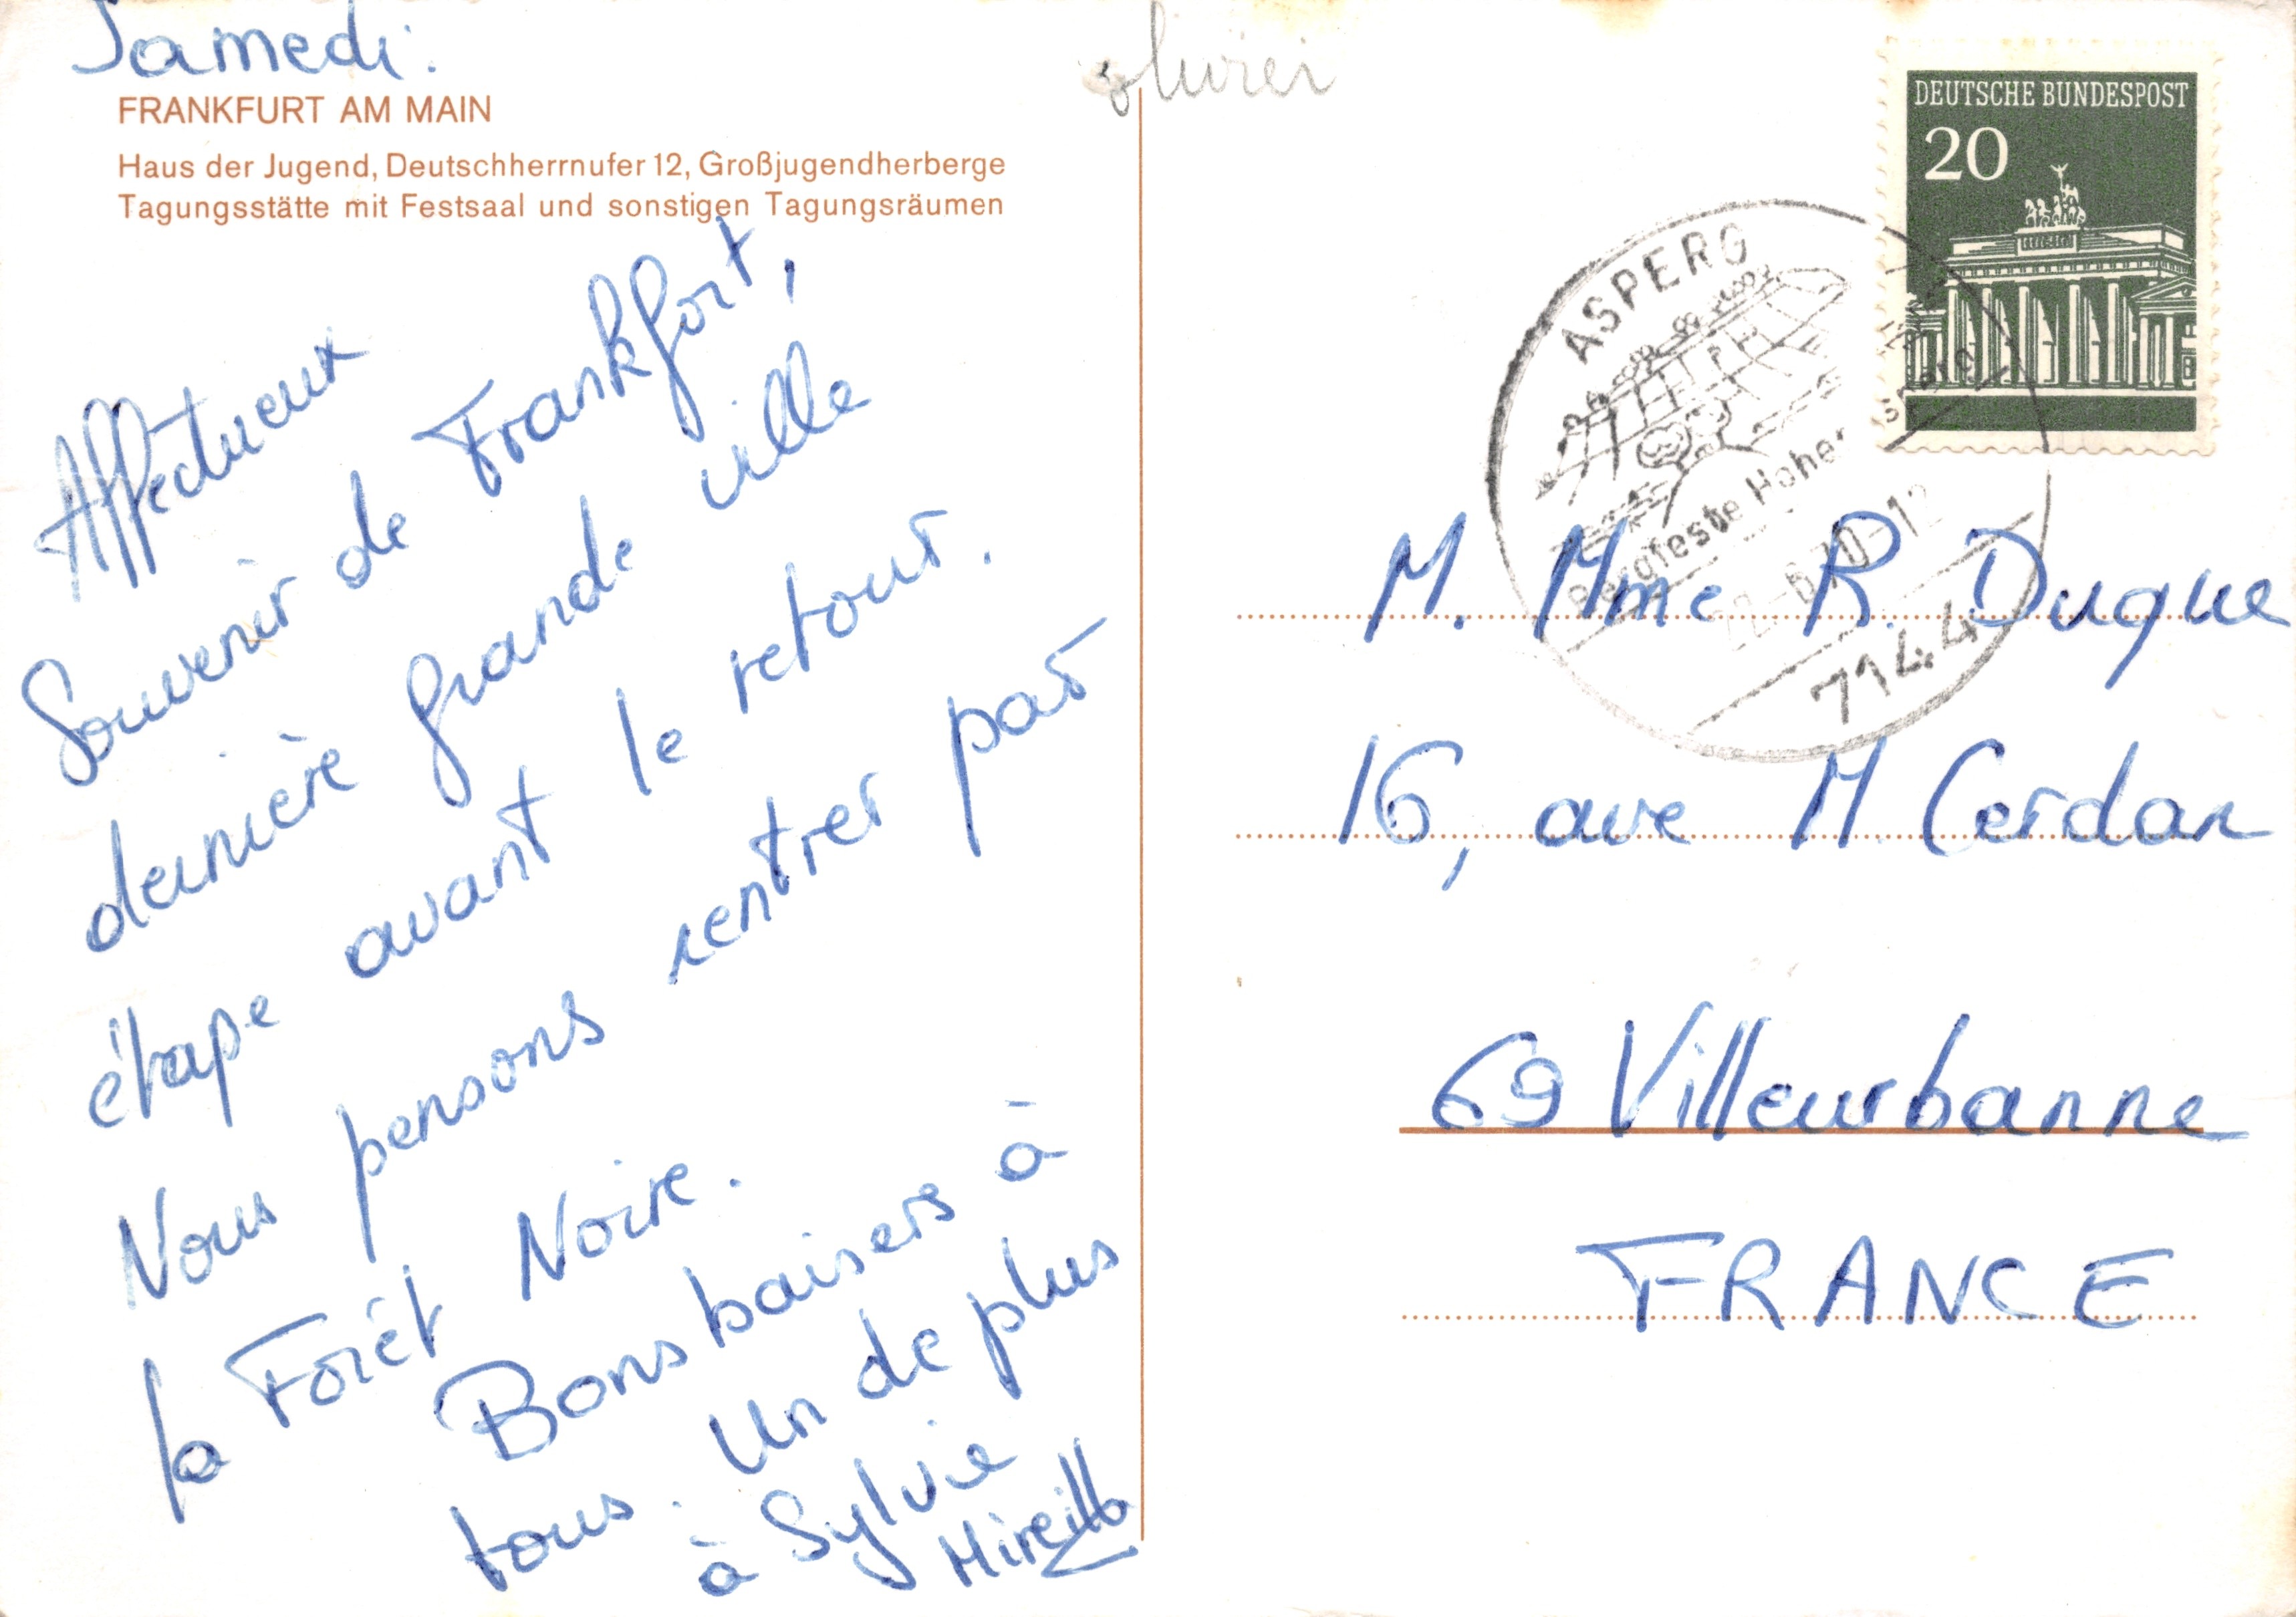 Samedi.
FRANKFURT AM MAIN
Haus der Jugend, Deutschherrnufer 12, Großjugendherberge
Tagungsstätte mit Festsaal und sonstigen Tagungsräumen
Affectueux
Souvenir de Frankfort,
dernière grande ville
étape avant le retour.
Nous pensons rentrer par
la Forêt Noire.
Bons baisers à
tous. Un de plus
à Sylvie
Mireille
olivier
DEUTSCHE BUNDESPOST
20
ASPERG
Bergfeste Hohenasperg
6.70-12
7144
M. Mme R. Duque
16, ave M. Cerdan
69 Villeurbanne
FRANCE